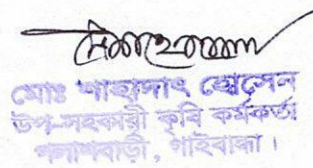 মোঃ শাহাদাৎ হোসেন
উপ-সহকারী কৃষি কর্মকর্তা
পলাশবাড়ী, গাইবান্ধা।